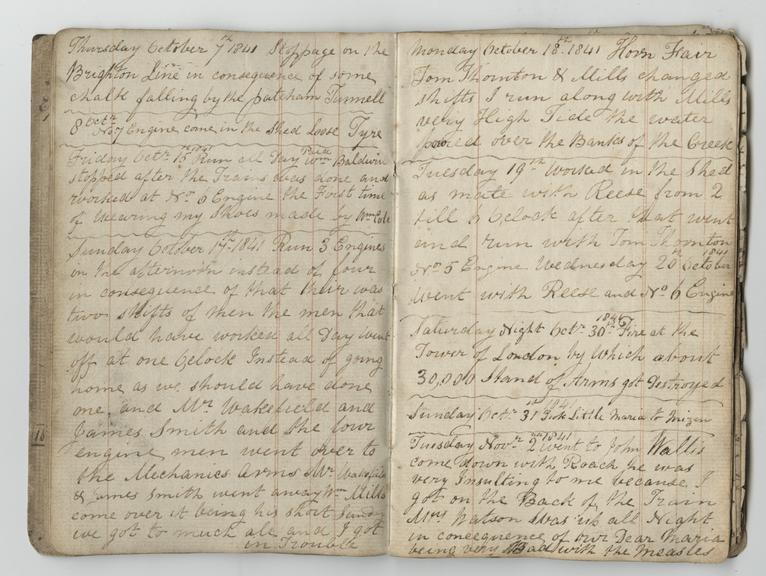 Thursday October 7th 1841 Stoppage on the
Brighton Line in consequence of some
chalk falling by the patcham Tunnell
8 Octr No 7 Engine come in the Shed Loose Tyre
Friday Octr 15th 1841 Run all Day Paid Wm Baldwin
stopped after the Trains was done and
worked at No 6 Engine the First time
of Wearing my Shoes made by Wm Cole
Sunday October 17th 1841 Run 3 Engines
in the afternoon instead of four
in consequence of that their was
two shifts of men the men that
would have worked all Day went
off at one Oclock Instead of going
home as we should have done
one and Mr Wakefield and
James Smith and the four
engine men went over to
the Mechanics Arms Mr Wakefield
& James Smith went away Wm Mills
come over it being his short Sunday
we got to much ale and I got
in Trouble
Monday October 18th 1841 Horn Fair
Tom Thornton & Mills changed
shifts I run along with Mills
very High Tide the water
poured over the Banks of the Creek
Tuesday 19th Worked in the Shed
as mate with Reese from 2
till 6 Oclock after that went
and run with Tom Thornton
No 5 Engine Wednesday 20th October 1841
Went with Reese and No 6 Engine
Saturday Night Octr 30th 1841 Fire at the
Tower of London by Which about
30,000 Stand of Arms got Destroyed
Sunday Octr 31st 1841 Took Little Maria to
Tuesday Novr 2nd 1841 Went to John Wallis
come down with Roach he was
very Insulting to me because I
got on the Back of the Train
Mrs Watson Was up all Night
in consequence of our Dear Maria
being very Bad with the Measles